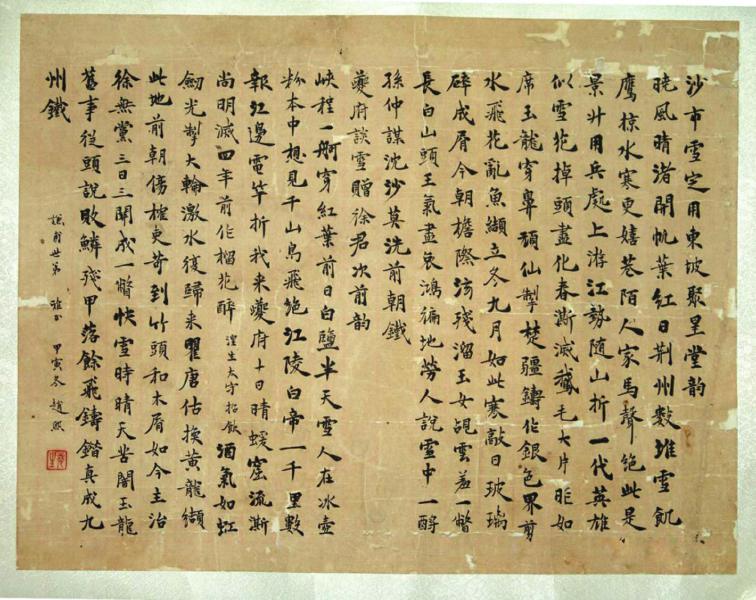 沙市雪定用東坡聚星堂韵
曉風晴渚開帆葉紅日荆州數堆雪飢
鹰掠水寒更嬉巷陌人家馬聲絶此是
景升用兵處上游江勢随山折一代英雄
似雪花掉頭盡化春澌滅鵞毛大片昨如
席玉龍穿鼻頑仙掣楚疆鑄作銀色界剪
水飛花亂魚纈立冬九月如此寒敲日玻璃
碎成屑今朝檐際滴殘溜玉女靚雲羞一瞥
長白山頭王氣盡哀鴻徧地勞人說雪中一醉
孫仲謀沈沙莫洗前朝鐵
夔府談雪贈徐君次前韵
峽程一舸穿紅葉前日白鹽半天雪人在冰壺
粉本中想見千山鳥飛絶江陵白帝一千里數
報江邊電竿折我來夔府十日晴蝯窟流澌
尚明滅四年前作榴花醉 淮生太守招飲 酒氣如虹
劒光掣大輪激水復歸来瞿唐估換黄龍纈
此地前朝傷榷吏苛到竹頭和木屑如今主治
徐無黨三日三關成一瞥快雪時晴天苦閣玉龍
舊事從頭說敗鱗殘甲落餘飛鑄錯真成九
州鐵
世弟 雅正 甲寅冬 趙熙